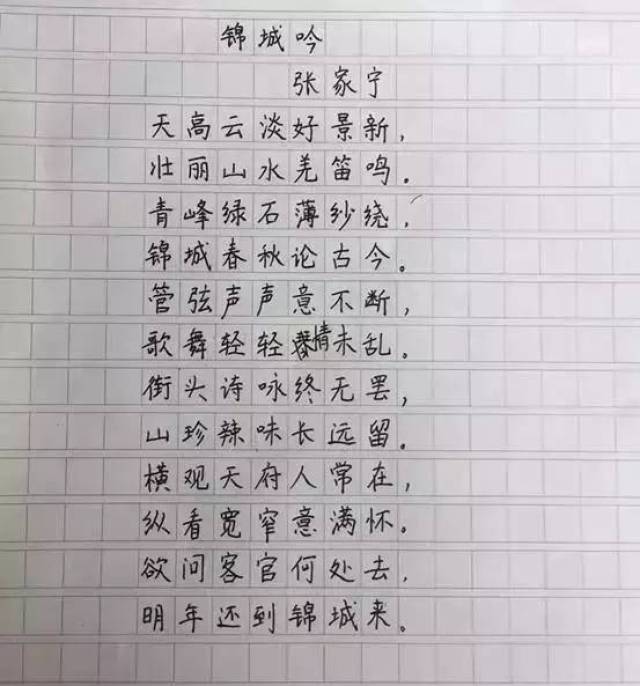 锦城吟
张家宁
天高云淡好景新，
壮丽山水羌笛鸣。
青峰绿石薄纱绕，
锦城春秋论古今。
管弦声声意不断，
歌舞轻轻情未乱。
街头诗咏终无罢，
山珍辣味长远留。
横观天府人常在，
纵看宽窄意满怀。
欲问客官何处去，
明年还到锦城来。